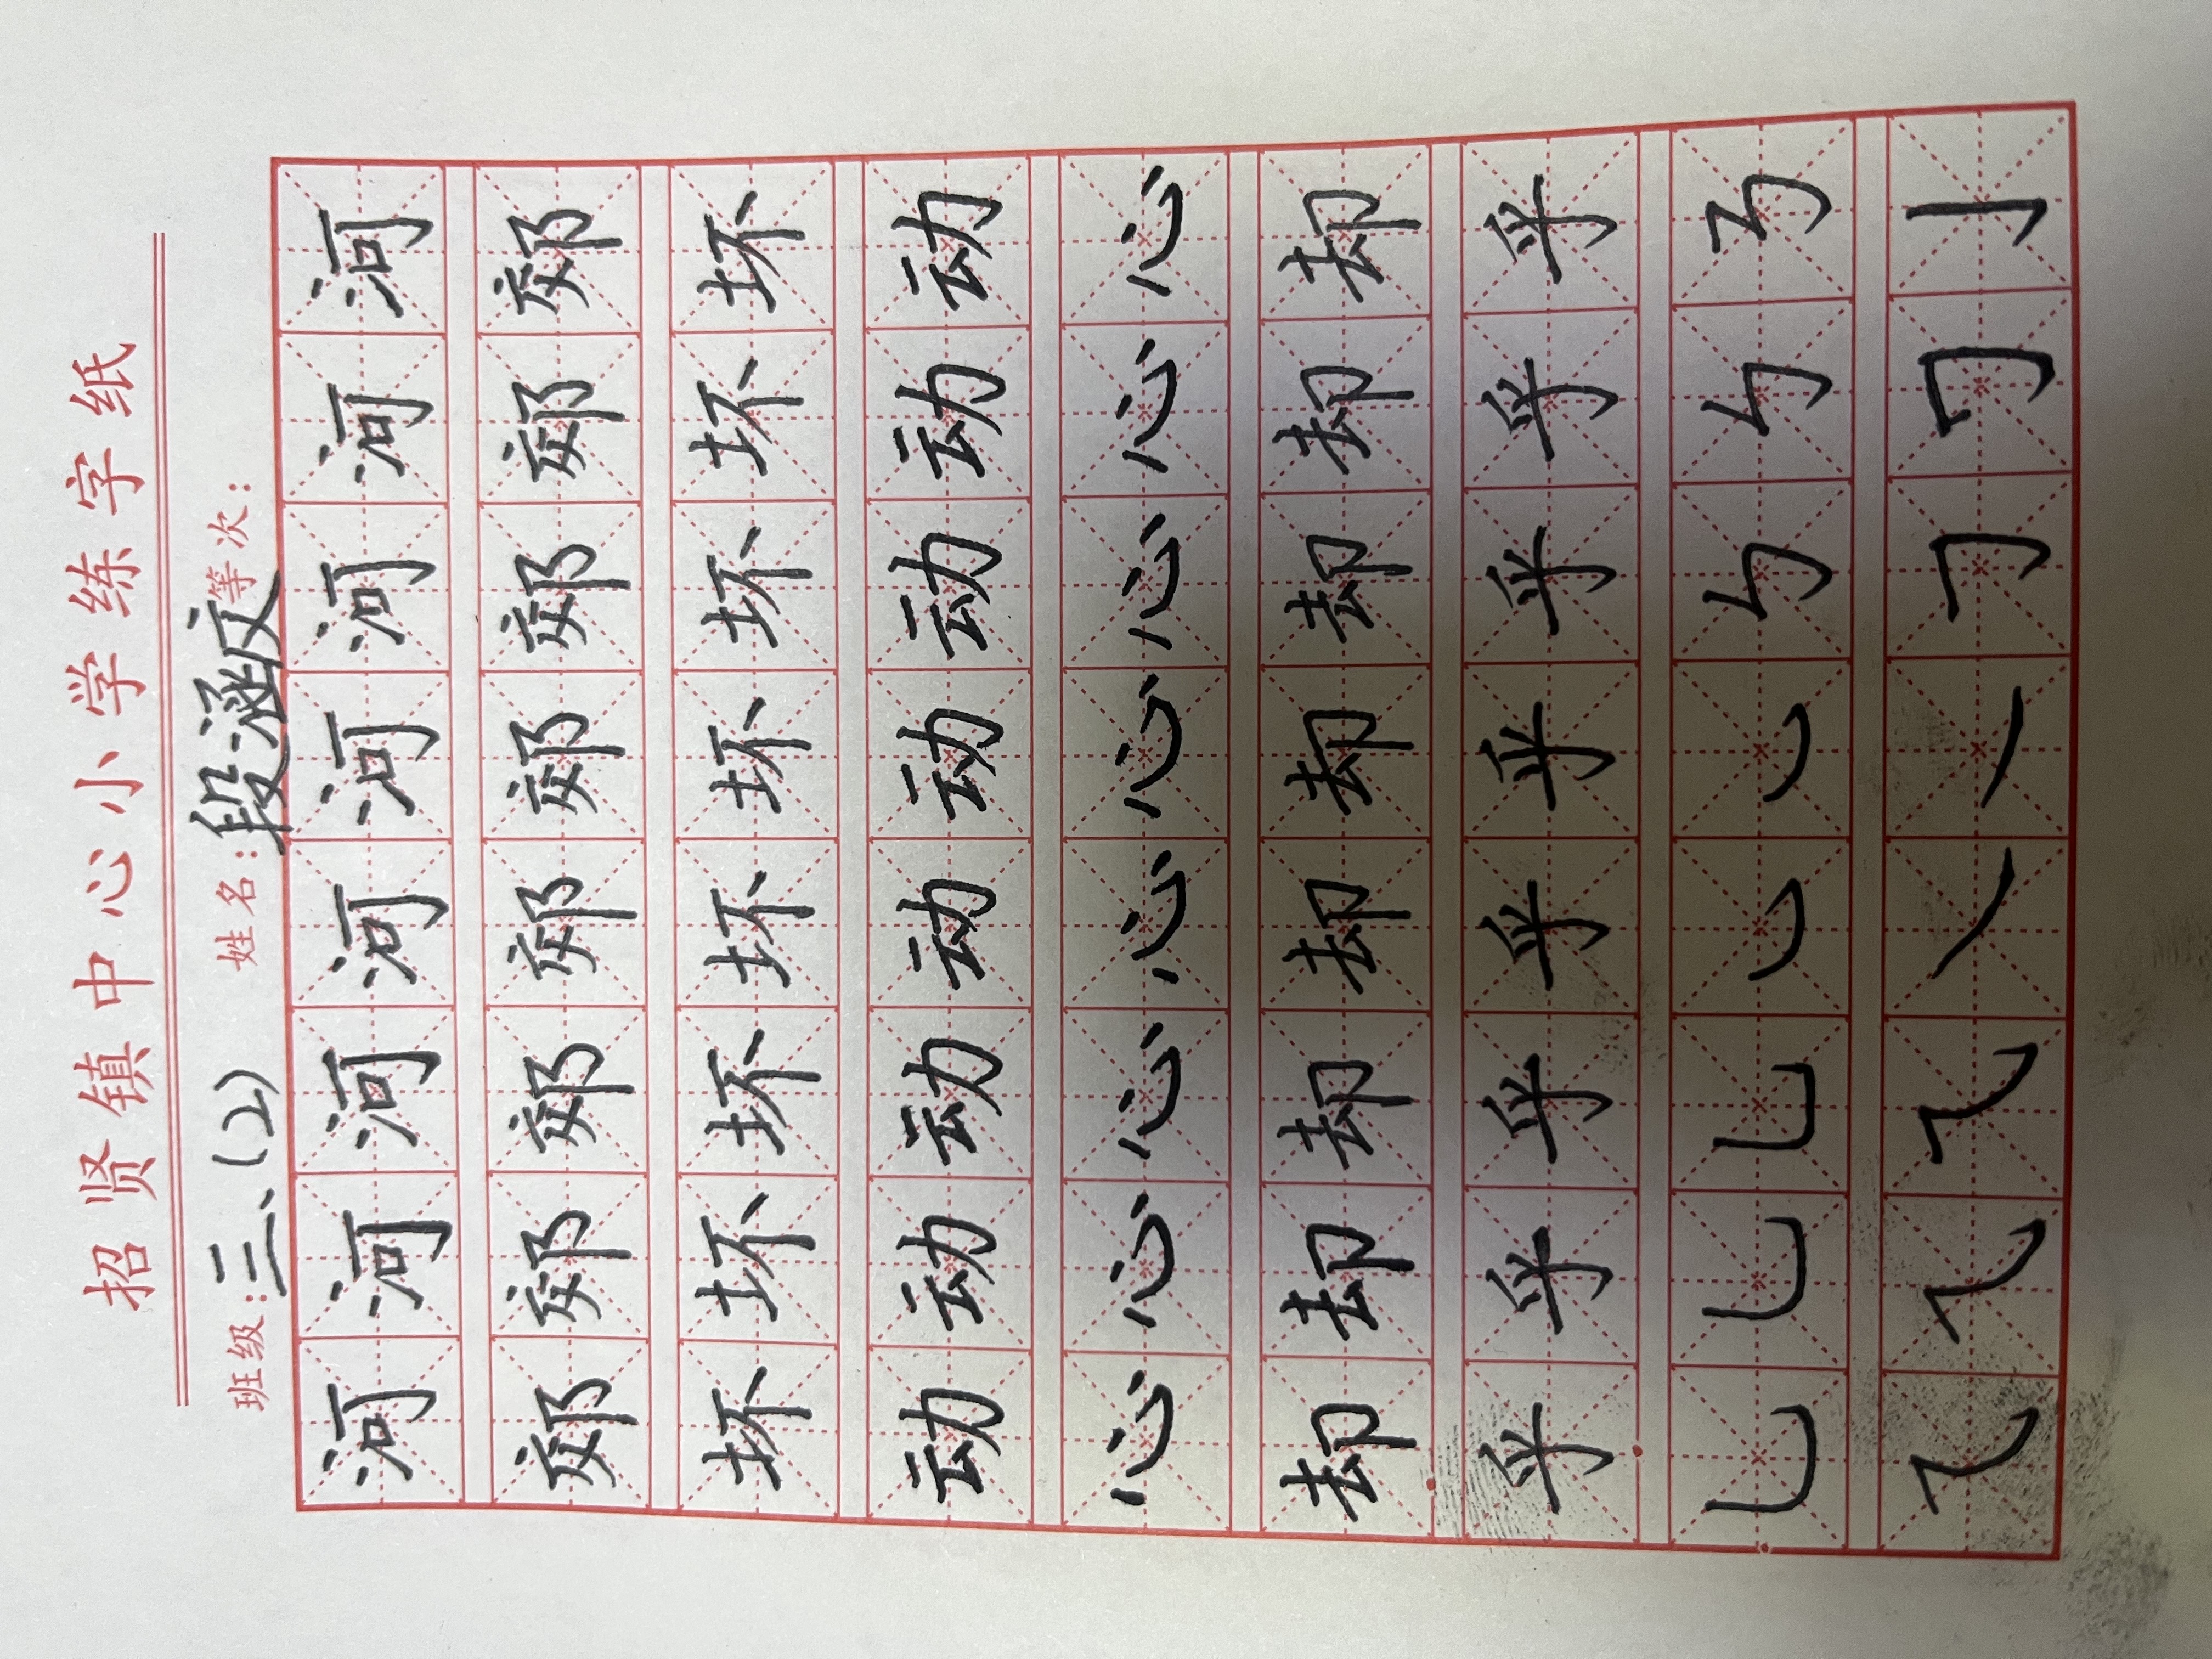 招贤镇中心小学练字纸
班级:三、(2) 姓名:段涵文 等次:
河河河河河河河河
郊郊郊郊郊郊郊郊
坏坏坏坏坏坏坏坏
动动动动动动动动
心心心心心心心心
却却却却却却却却
乎乎乎乎乎乎乎乎
乚乚乚㇃㇃㇉㇉㇋
㇂㇂㇂㇏㇏𠃌𠃌亅